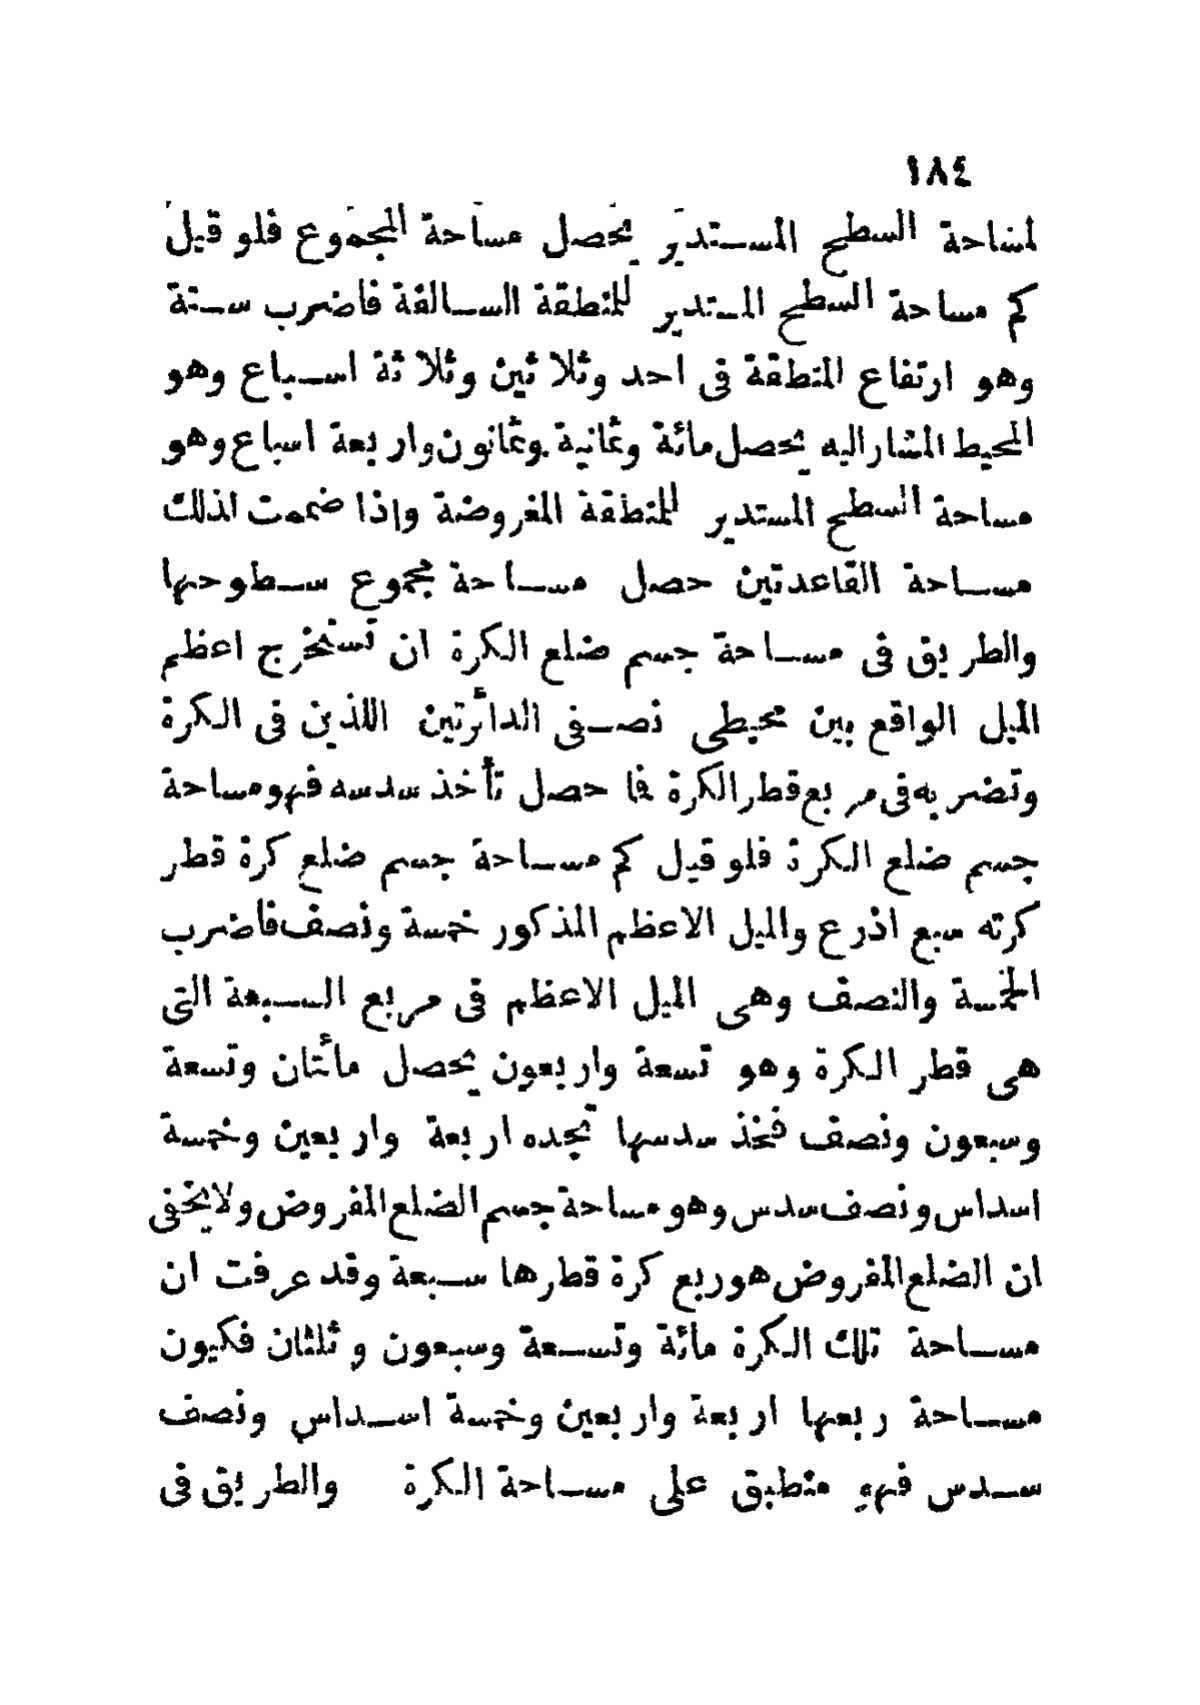 ١٨٤
لمساحة السطح المستدير يحصل مساحة المجموع فلو قيل
كم مساحة السطح المستدير للمنطقة السالفة فاضرب ستة
وهو ارتفاع المنطقة فى احد وثلاثين وثلاثة اسباع وهو
المحيط المشار اليه يحصل مائة وثمانية وثمانون واربعة اسباع وهو
مساحة السطح المستدير للمنطقة المفروضة واذا ضممت لذلك
مساحة القاعدتين حصل مساحة مجموع سطوحها
والطريق فى مساحة جسم ضلع الكرة ان تستخرج اعظم
الميل الواقع بين محيطى نصفى الدائرتين اللذين فى الكرة
وتضربه فى مربع قطر الكرة فما حصل تأخذ سدسه فهو مساحة
جسم ضلع الكرة فلو قيل كم مساحة جسم ضلع كرة قطر
كرته سبع اذرع والميل الاعظم المذكور خمسة ونصف فاضرب
الخمسة والنصف وهى الميل الاعظم فى مربع السبعة التى
هى قطر الكرة وهو تسعة واربعون يحصل مائتان وتسعة
وسبعون ونصف فخذ سدسها تجده اربعة واربعين وخمسة
اسداس ونصف سدس وهو مساحة جسم الضلع المفروض ولا يخفى
ان الضلع المفروض هو ربع كرة قطرها سبعة وقد عرفت ان
مساحة تلك الكرة مائة وتسعة وسبعون وثلثان فكيون
مساحة ربعها اربعة واربعين وخمسة اسداس ونصف
سدس فهو منطبق على مساحة الكرة والطريق فى